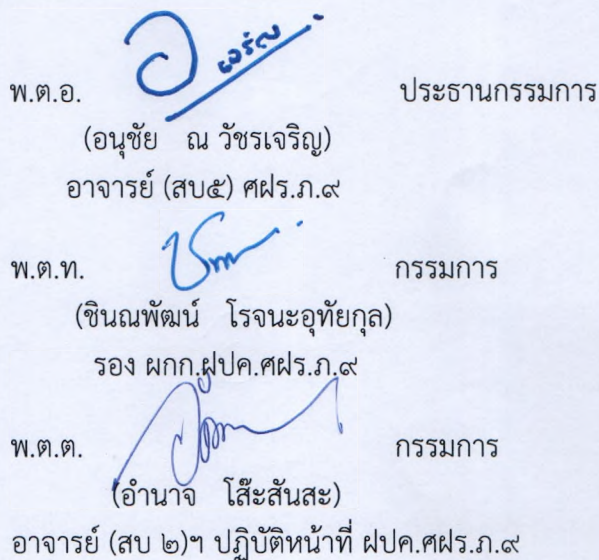 พ.ต.อ. ประธานกรรมการ
(อนุชัย ณ วัชรเจริญ)
อาจารย์ (สบ๕) ศฝร.ภ.๙
พ.ต.ท. กรรมการ
(ชินณพัฒน์ โรจนะอุทัยกุล)
รอง ผกก.ฝปค.ศฝร.ภ.๙
พ.ต.ต. กรรมการ
(อำนาจ โส๊ะสันสะ)
อาจารย์ (สบ ๒)ฯ ปฏิบัติหน้าที่ ฝปค.ศฝร.ภ.๙